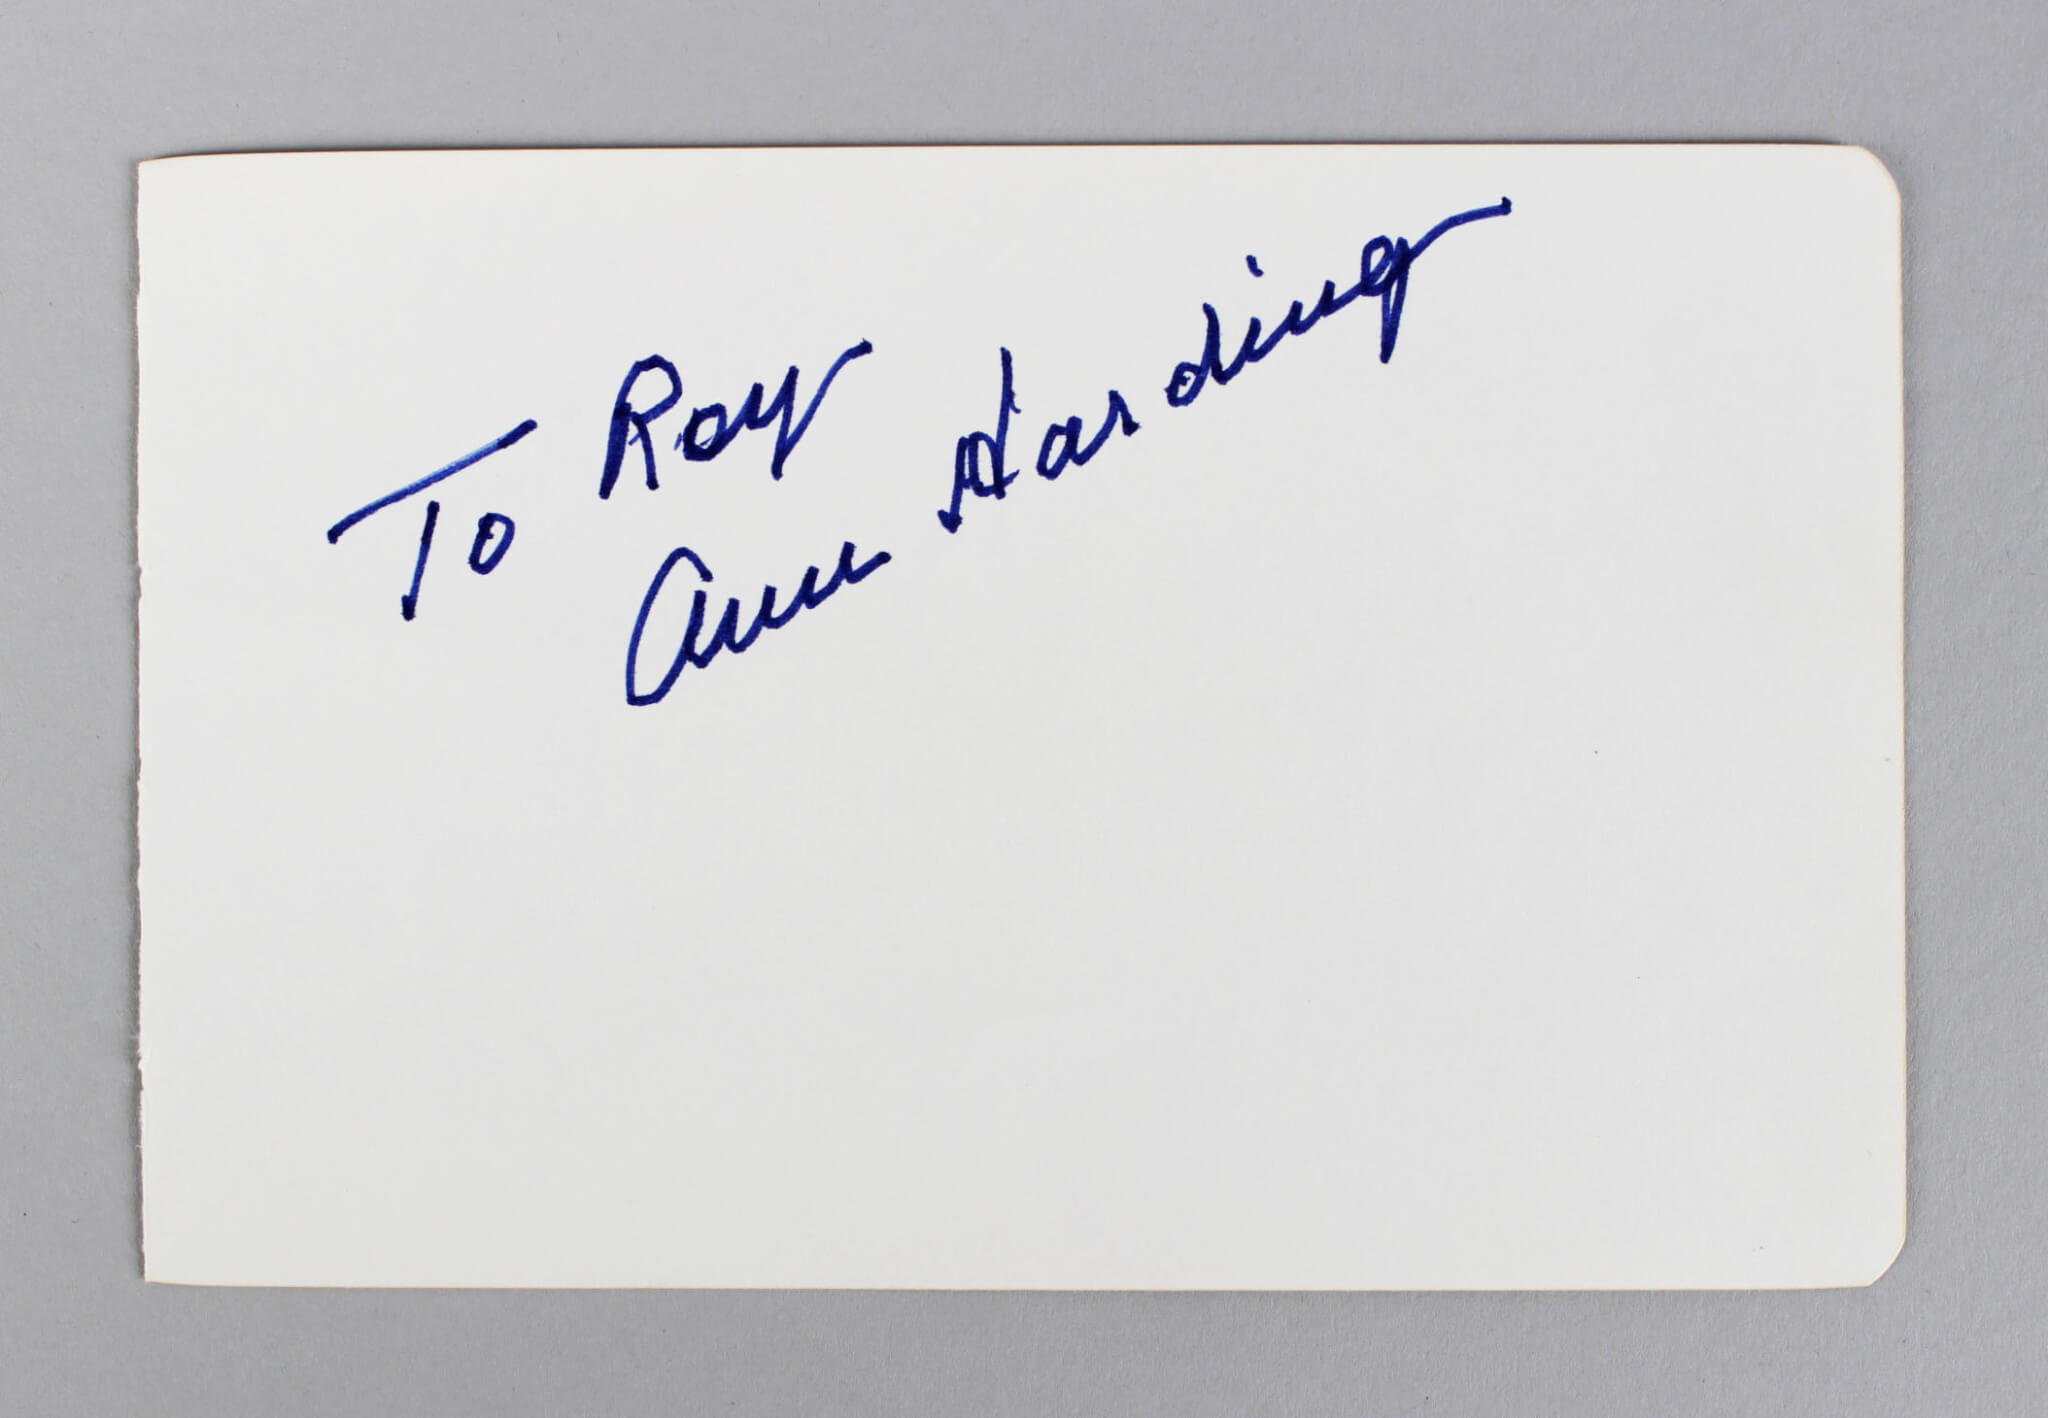 To Roy
Ann Harding